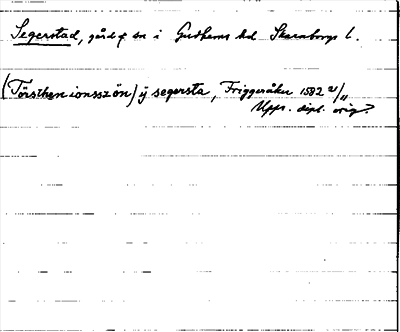 Segerstad, gård o sn i Gudhems hd Skaraborgs l.
(Torsthen ionsszön) ÿ segersta, Friggeråker 1582 2/11
Upps. dipl. orig.?